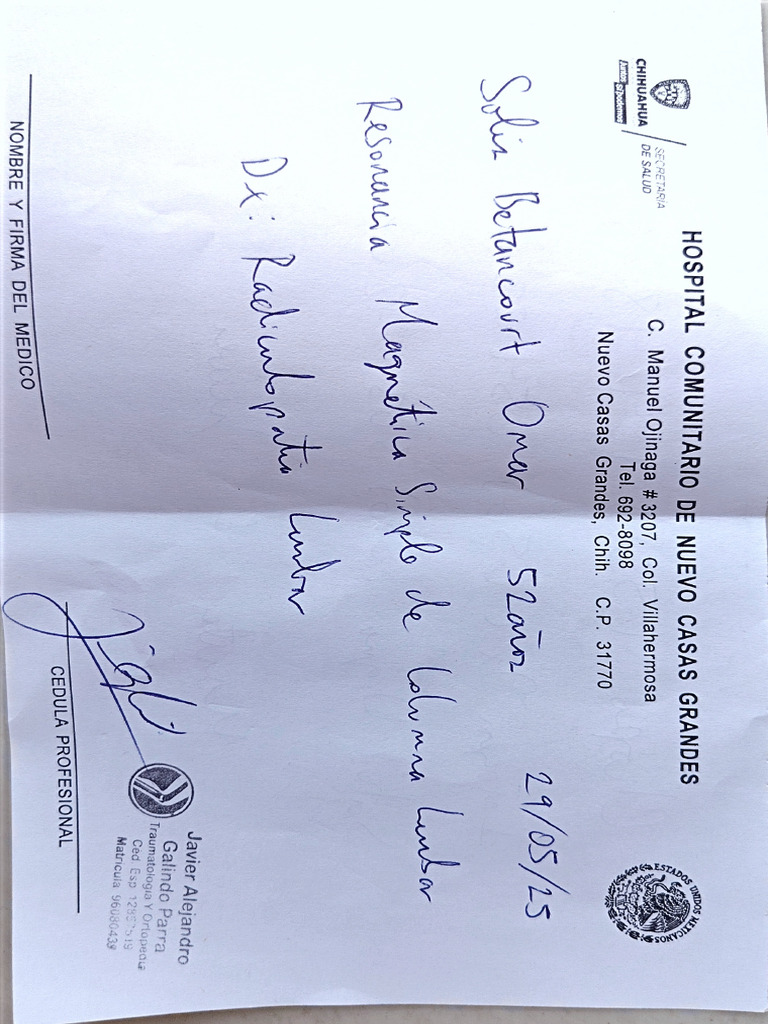 CHIHUAHUA
SECRETARIA
DE SALUD
HOSPITAL COMUNITARIO DE NUEVO CASAS GRANDES
C. Manuel Ojinaga # 3207, Col. Villahermosa
Tel. 692-8098
Nuevo Casas Grandes, Chih. C.P. 31770
ESTADOS UNIDOS MEXICANOS
Solis Betancourt Omar 52años 29/05/25
Resonancia Magnética Simple de Columna Lumbar
Dx: Radiculopatia Lumbar
Javier Alejandro
Galindo Parra
Traumatologia Y Ortopedia
Ced. Esp.
Matricula
NOMBRE Y FIRMA DEL MEDICO
CEDULA PROFESIONAL